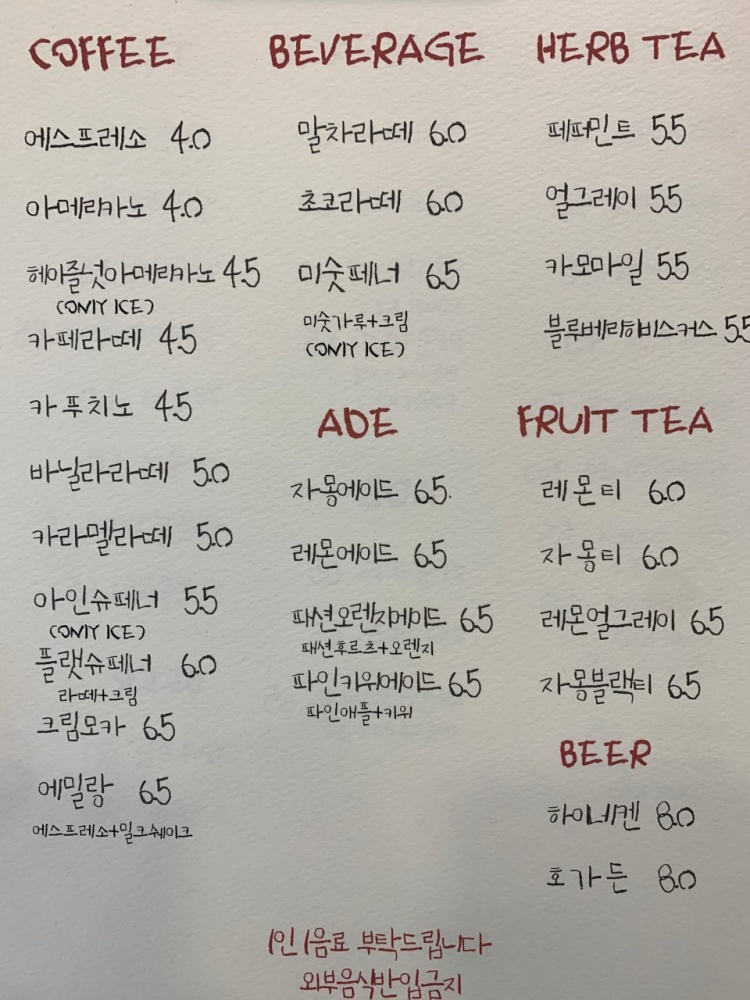 COFFEE
에스프레소 4.0
아메리카노 4.0
헤이즐넛아메리카노 4.5
(ONlY ICE)
카페라떼 4.5
카푸치노 4.5
바닐라라떼 5.0
카라멜라떼 5.0
아인슈페너 5.5
(ONlY ICE)
플랫슈페너 6.0
라떼+크림
크림모카 6.5
에밀랑 6.5
에스프레소+밀크쉐이크
BEVERAGE
말차라떼 6.0
초코라떼 6.0
미숫페너 6.5
미숫가루+크림
(ONlY ICE)
ADE
자몽에이드 6.5
레몬에이드 6.5
패션오렌지에이드 6.5
패션후르츠+오렌지
파인키위에이드 6.5
파인애플+키위
HERB TEA
페퍼민트 5.5
얼그레이 5.5
카모마일 5.5
블루베리히비스커스 5.5
FRUIT TEA
레몬티 6.0
자몽티 6.0
레몬얼그레이 6.5
자몽블랙티 6.5
BEER
하이네켄 8.0
호가든 8.0
1인 1음료 부탁드립니다
외부음식반입금지